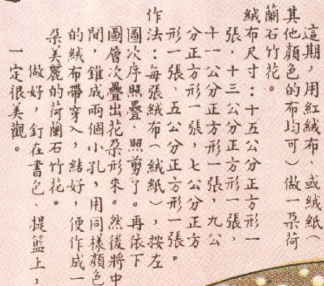 這期，用紅絨布，或絨紙（
其他顏色的布均可）做一朵荷
蘭石竹花。
絨布尺寸：十五公分正方形一
張，十三公分正方形一張，
十一公分正方形一張，九公
分正方形一張，七公分正方
形一張，五公分正方形一張。
作法：每張絨布（絨紙），按左
圖次序照疊，照剪了。再依下
圖層次疊出花朵形來。然後將中
間，錐成兩個小孔，用同樣顏色
的絨布帶穿入，結好，便作成一
朵美麗的荷蘭石竹花。
做好，釘在書包，提籃上，
一定很美觀。